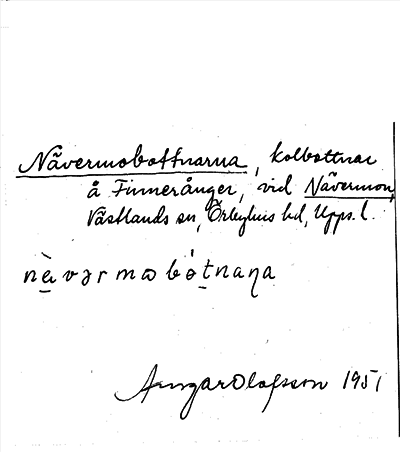 Nävermobottnarna, kolbottnar
å Finnerånger, vid Nävermon,
Västlands sn, Örbyhus hd, Upps. l.
nὲvərmɷbòtnaɳa
Ansgar Olofsson 1951